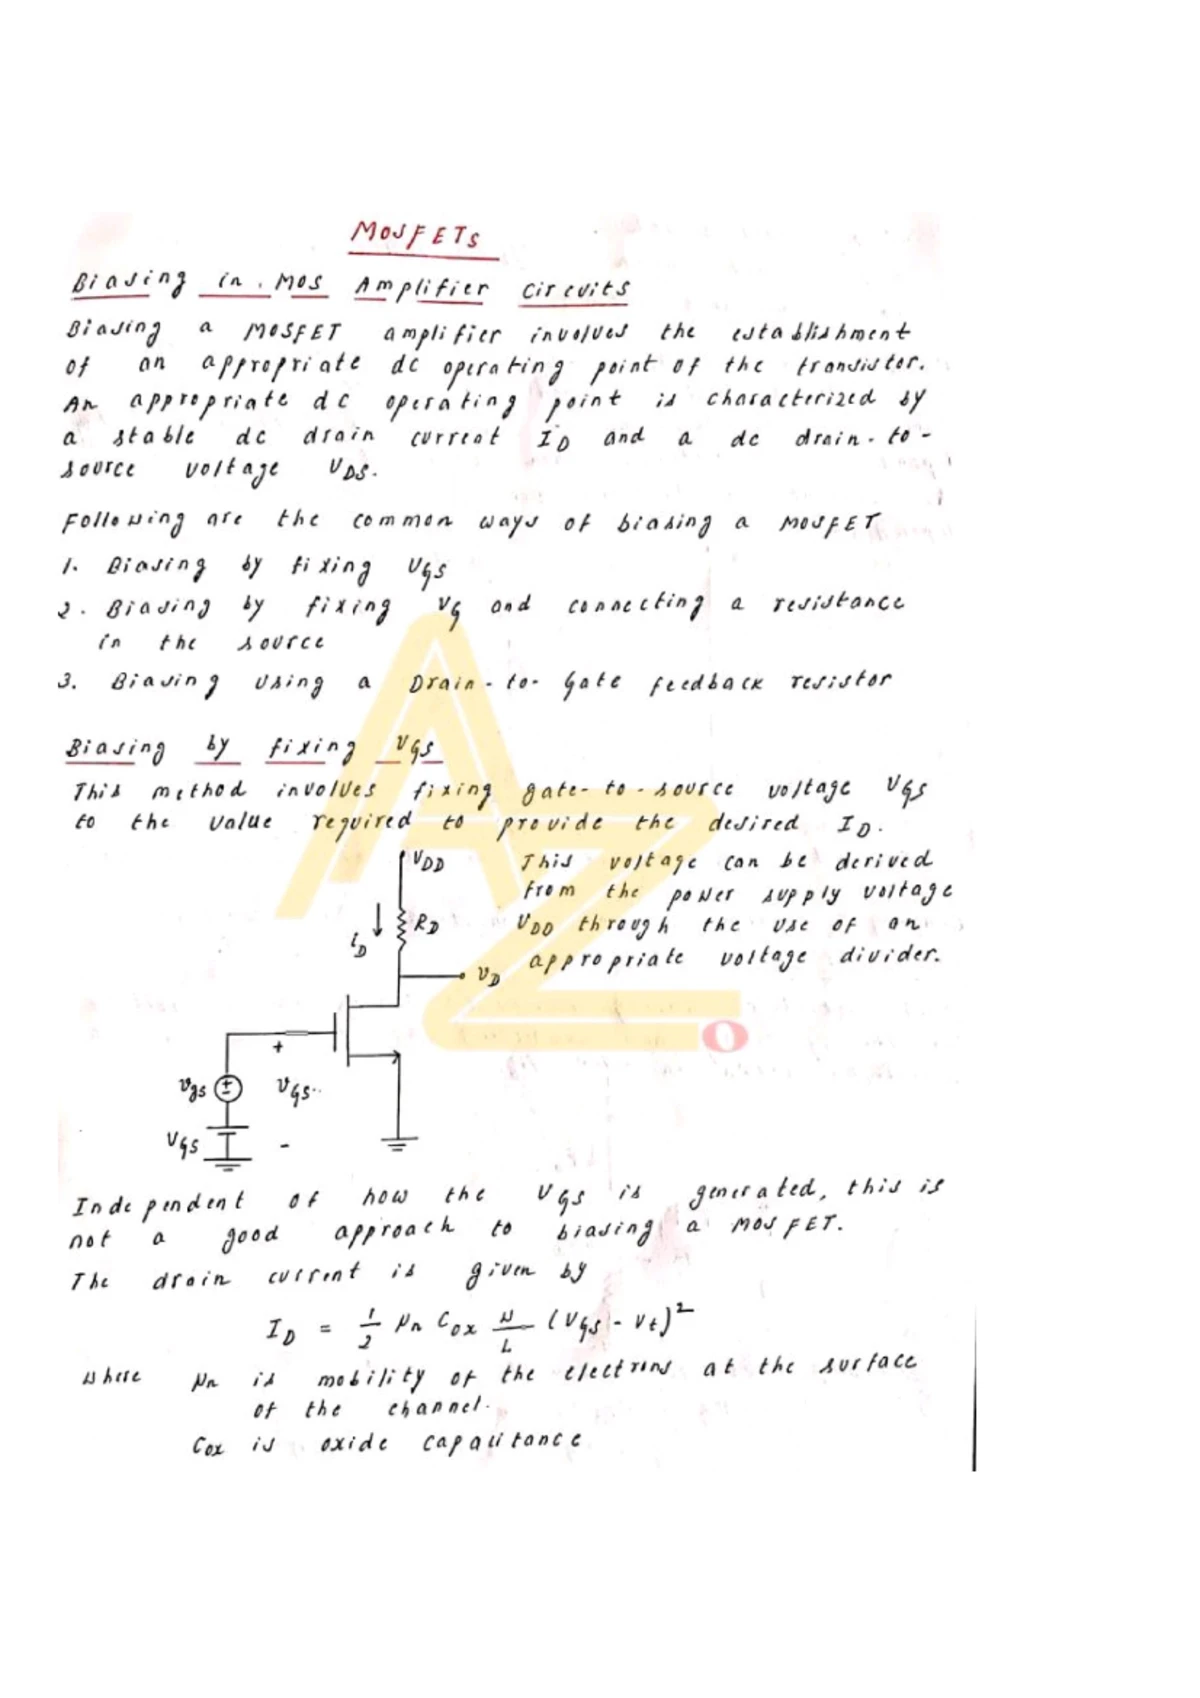 MOSFETs
Biasing in MOS Amplifier Circuits
Biasing a MOSFET amplifier involves the establishment
of an appropriate dc operating point of the transistor.
An appropriate dc operating point is characterized by
a stable dc drain current I_D and a dc drain-to-
source voltage V_DS.
Following are the common ways of biasing a MOSFET
1. Biasing by fixing V_GS
2. Biasing by fixing V_G and connecting a resistance
in the source
3. Biasing using a Drain-to-Gate feedback resistor
Biasing by fixing V_GS
This method involves fixing gate-to-source voltage V_GS
to the value required to provide the desired I_D.
V_DD
This voltage can be derived
from the power supply voltage
V_DD through the use of an
appropriate voltage divider.
i_D
R_D
v_D
+
v_gs
+
-
v_GS
V_GS
-
Independent of how the V_GS is generated, this is
not a good approach to biasing a MOSFET.
The drain current is given by
I_D = 1/2 μn Cox W/L (V_GS - Vt)²
where μn is mobility of the electrons at the surface
of the channel.
Cox is oxide capacitance
AZ
O